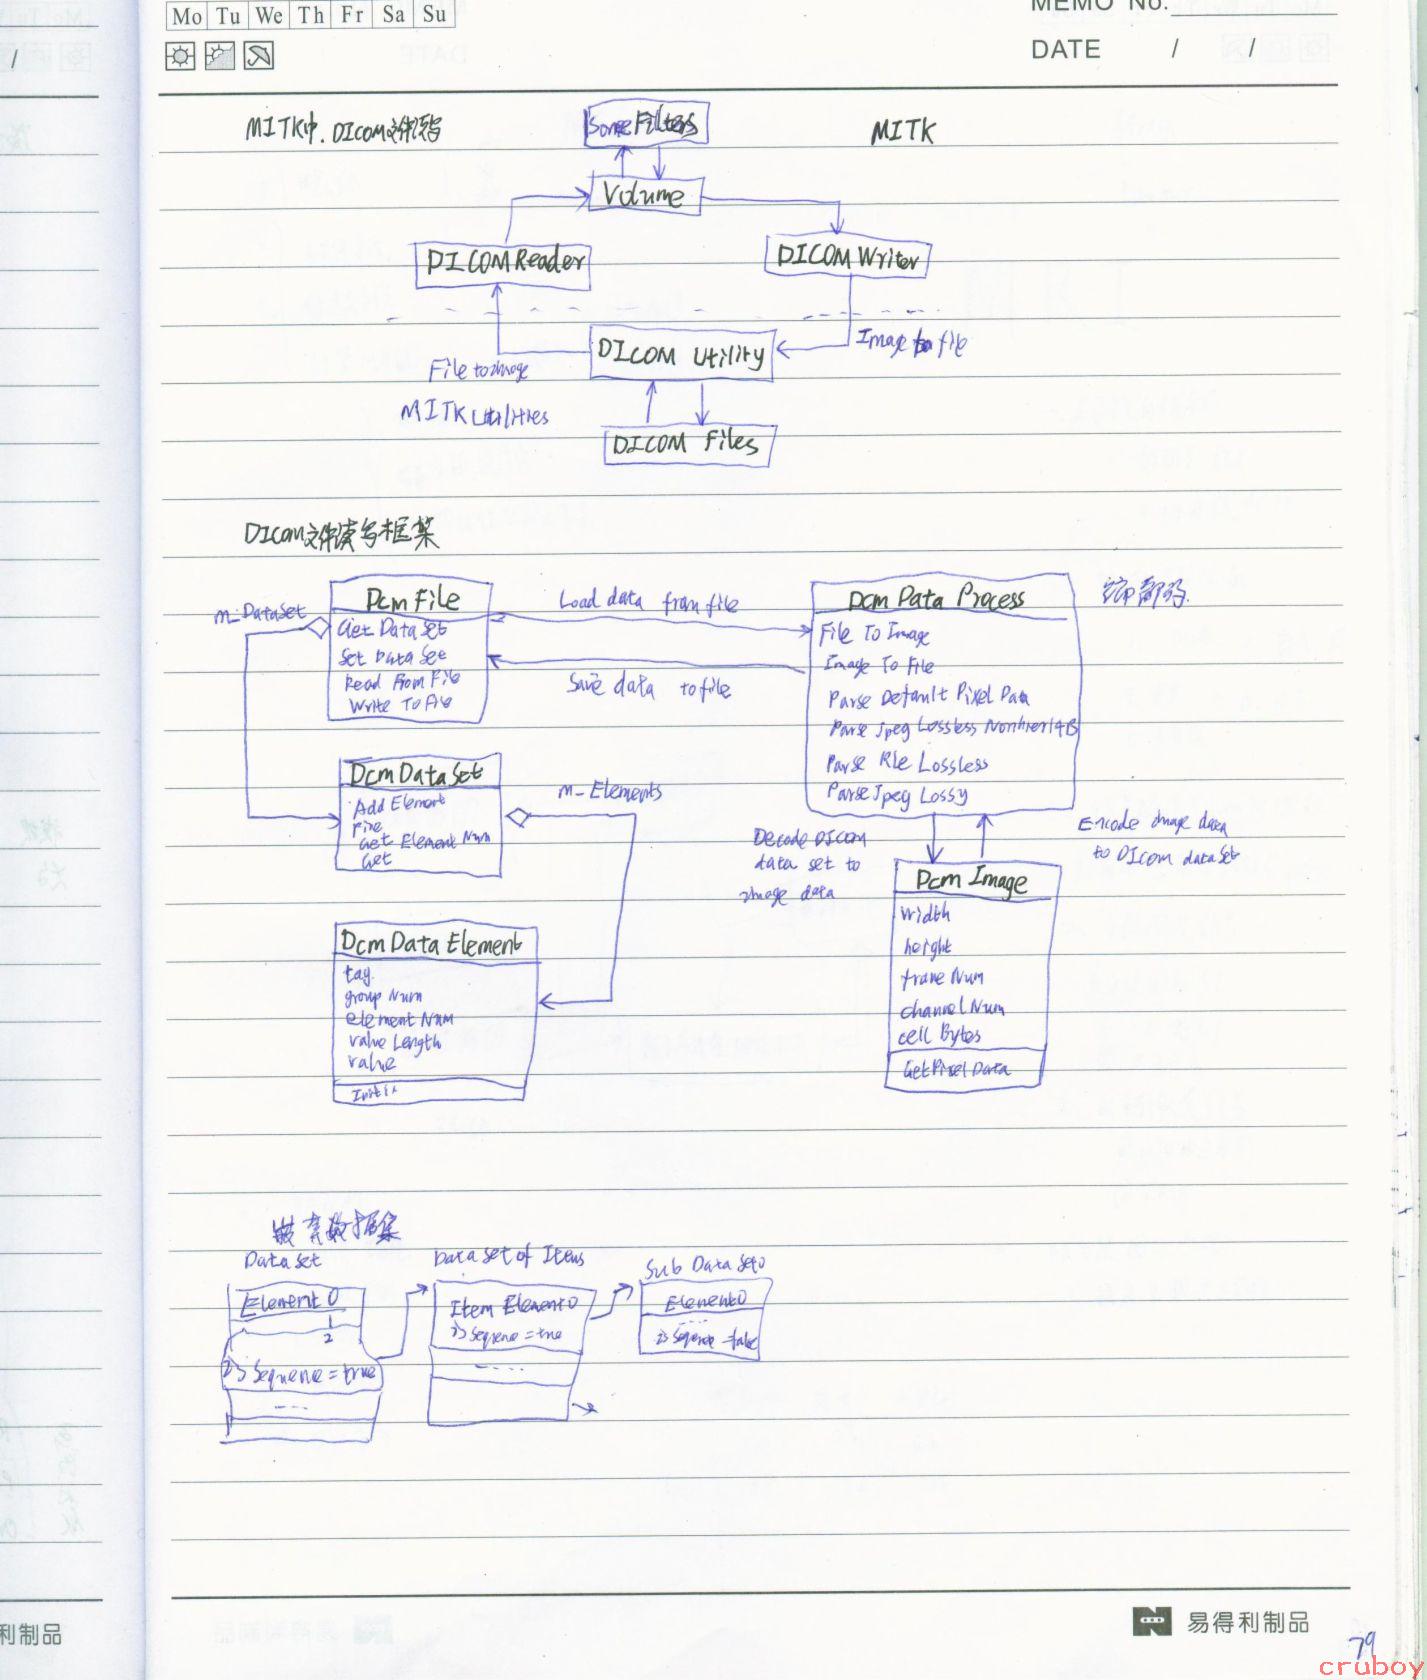 Mo Tu We Th Fr Sa Su
MEMO No.
DATE / /
/
MITK中.DICOM文件
Some Filters
MITK
Volume
DICOMReader
DICOM Writer
DICOM Utility
Image to file
File to image
MITK Utilities
DICOM Files
DICOM文件读写框架
m_DataSet
Dcm File
Get Data Set
Set Data Set
Read From File
Write To File
Load data from file
Save data to file
Dcm Data Process
File To Image
Image To File
Parse Default Pixel Data
Parse Jpeg Lossless Nonhier14B
Parse Rle Lossless
Parse Jpeg Lossy
解码
Dcm Data Set
Add Element
Get Element Num
Get
m_Elements
Decode DICOM
data set to
image data
Encode image data
to DICOM data set
Dcm Image
width
height
frame Num
channel Num
cell Bytes
Get Pixel Data
Dcm Data Element
tag
group Num
element Num
value Length
value
嵌套数据集
Data Set
Element 0
1
2
is Sequence = true
...
Data set of Items
Item Element0
is Sequence = true
....
Sub Data Set0
Element0
....
is Sequence = false
利制品
易得利制品
79
cruboy